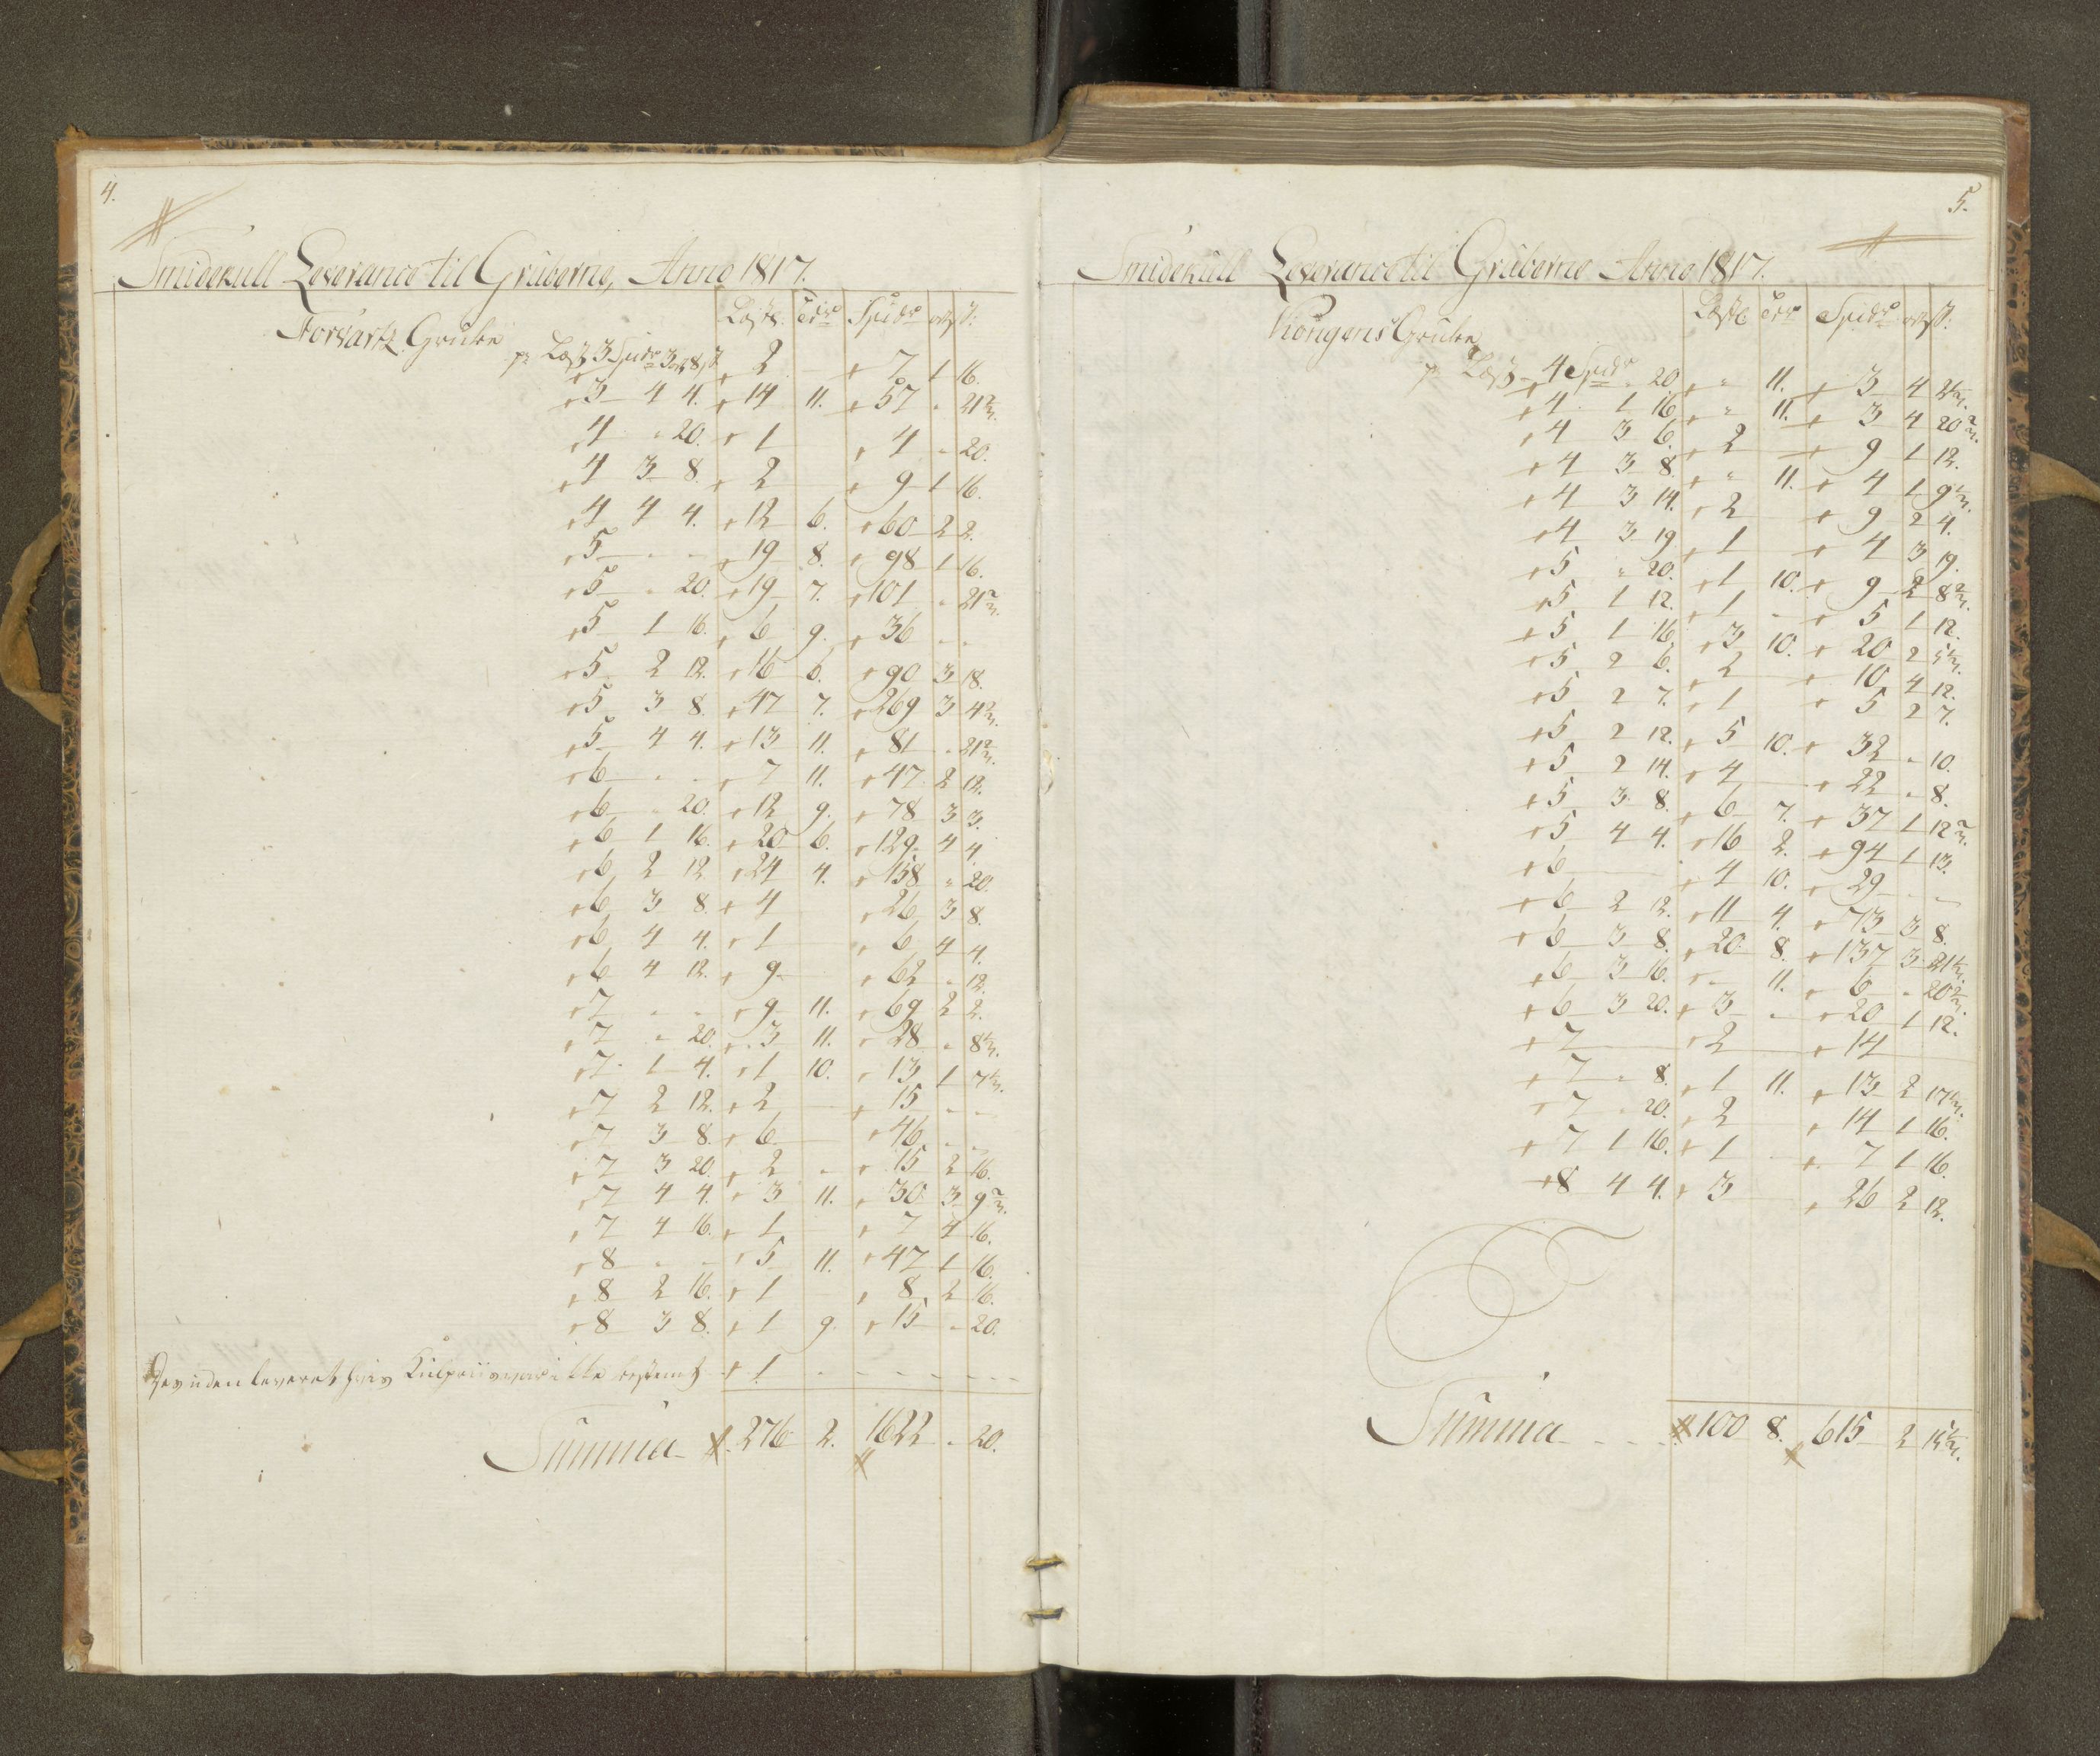 4.
Smidekull Leverance til Gruberne, Anno 1817.
Læst. Tdr Spidr ort ß.
Forsøk Grube
pr Læst 3 Spidr 3 ort 8 ß 2 7 1 16.
3 4 4. 14 11. 57 " 21 2/3.
4 " 20. 1 4 " 20.
4 3 8. 2 9 1 16.
4 4 4. 12 6. 60 2 2.
5 " " 19 8. 98 1 16.
5 " 20. 19 7. 101 " 21 2/3.
5 1 16. 6 9. 36 " "
5 2 12. 16 6. 90 3 18.
5 3 8. 47 7. 269 3 4 2/3.
5 4 4. 13 11. 81 " 21 2/3.
6 " " 7 11. 47 2 12.
6 " 20. 12 9. 78 3 3.
6 1 16. 20 6. 129 4 4.
6 2 12 24 4. 158 " 20.
6 3 8. 4 26 3 8.
6 4 4. 1 6 4 4.
6 4 12. 9 62 " 12.
7 " " 9 11. 69 2 2.
7 " 20. 3 11. 28 " 8 1/3.
7 1 4. 1 10. 13 1 7 1/3.
7 2 12. 2 15 " "
7 3 8. 6 46 " "
7 3 20. 2 " 15 2 16.
7 4 4. 3 11. 30 3 9 2/3.
7 4 16. 1 7 4 16.
8 " " 5 11. 47 1 16.
8 2 16. 1 8 2 16.
8 3 8. 1 9. 15 " 20.
Desuden leveret hvis Kulpriis var ikke bestemt 1.
Summa 276 2. 1622 " 20.
5.
Smidekull Leverance til Gruberne Anno 1817.
Læst Tdr Spidr ort ß.
Kongens Grube
pr Læst 4 Spidr " 20 " 11. 3 4 2 1/3.
4 1 16. " 11. 3 4 20 2/3.
4 3 6. 2 9 1 12.
4 3 8. " 11. 4 1 9 1/3.
4 3 14. 2 9 2 4.
4 3 19 1 4 3 19.
5 " 20. 1 10. 9 2 8 2/3.
5 1 12. 1 5 1 12.
5 1 16. 3 10. 20 2 5 1/3.
5 2 6. 2 10 4 12.
5 2 7. 1 5 2 7.
5 2 12. 5 10. 32 " 10.
5 2 14. 4 22 " 8.
5 3 8. 6 7. 37 1 12 2/3.
5 4 4. 16 2. 94 1 13.
6 4 10. 29 " "
6 2 12. 11 4. 73 3 8.
6 3 8. 20 8. 137 3 21 1/3.
6 3 16. " 11. 6 " 20 2/3.
6 3 20. 3 20 1 12.
7 2 14
7 " 8. 1 11. 13 2 17 1/3.
7 " 20. 2 14 1 16.
7 1 16. 1 7 1 16.
8 4 4. 3 26 2 12.
Summa 100 8. 615 2 15 1/3.